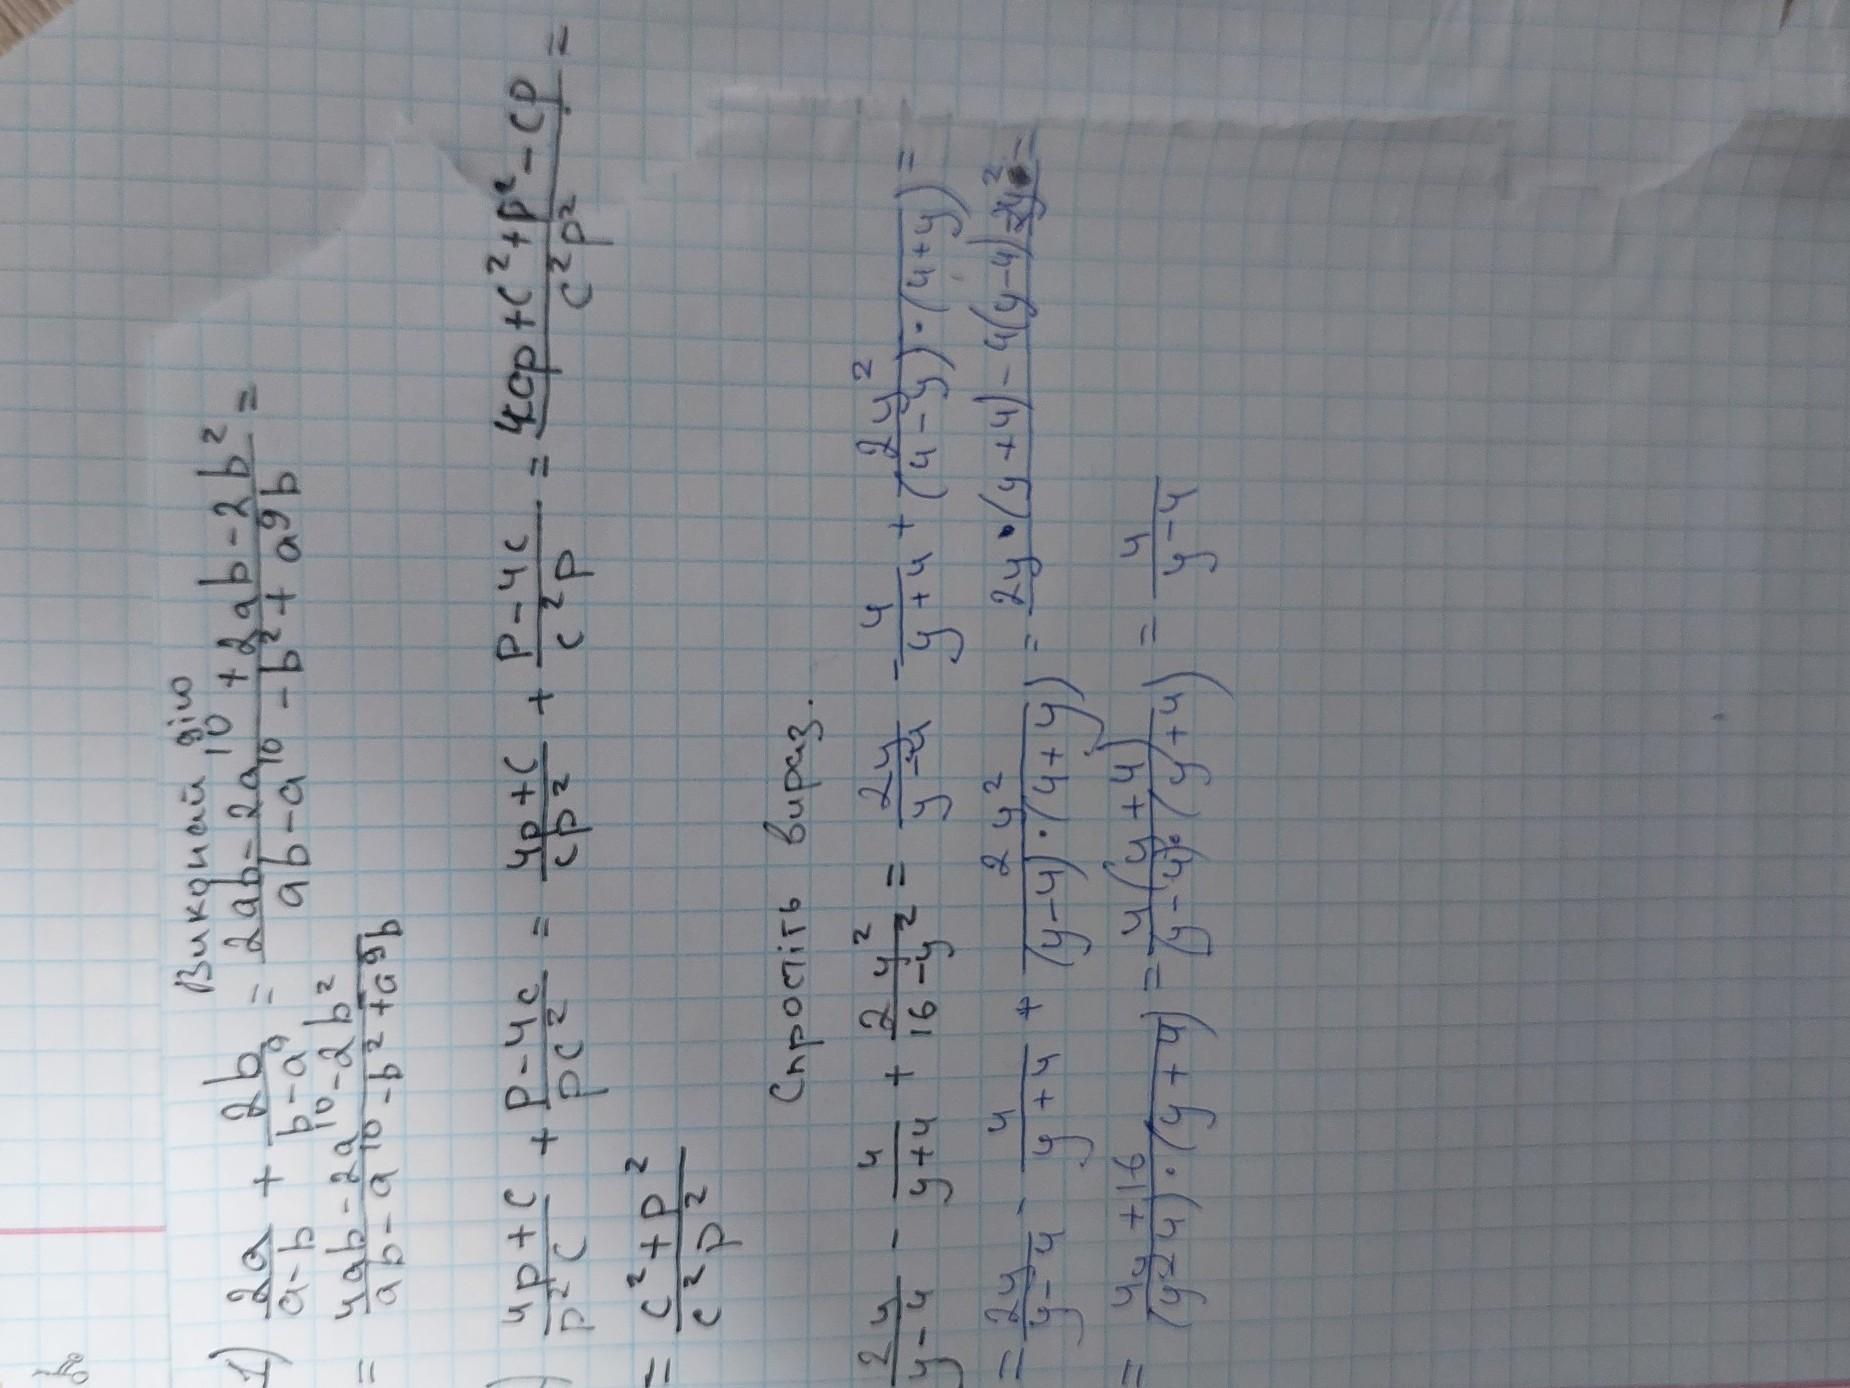 Виконай дію
1) 2a/(a-b) + 2b/(b-a⁹) = (2ab-2a¹⁰+2ab-2b²)/(ab-a¹⁰-b²+a⁹b) =
= (4ab-2a¹⁰-2b²)/(ab-a¹⁰-b²+a⁹b)
) (4p+c)/(p²c) + (p-4c)/(pc²) = (4p+c)/(cp²) + (p-4c)/(c²p) = (4cp+c²+p²-cp)/(c²p²) =
= (c²+p²)/(c²p²)
Спростіть вираз.
2y/(y-4) - 4/(y+4) + 2y²/(16-y²) = 2y/(y-4) - 4/(y+4) + 2y²/((4-y)·(4+y)) =
= 2y/(y-4) - 4/(y+4) + 2y²/((y-4)·(4+y)) = 2y·(y+4)-4(y-4)-2y² =
= (4y+16)/((y-4)·(y+4)) = 4(y+4)/((y-4)·(y+4)) = 4/(y-4)